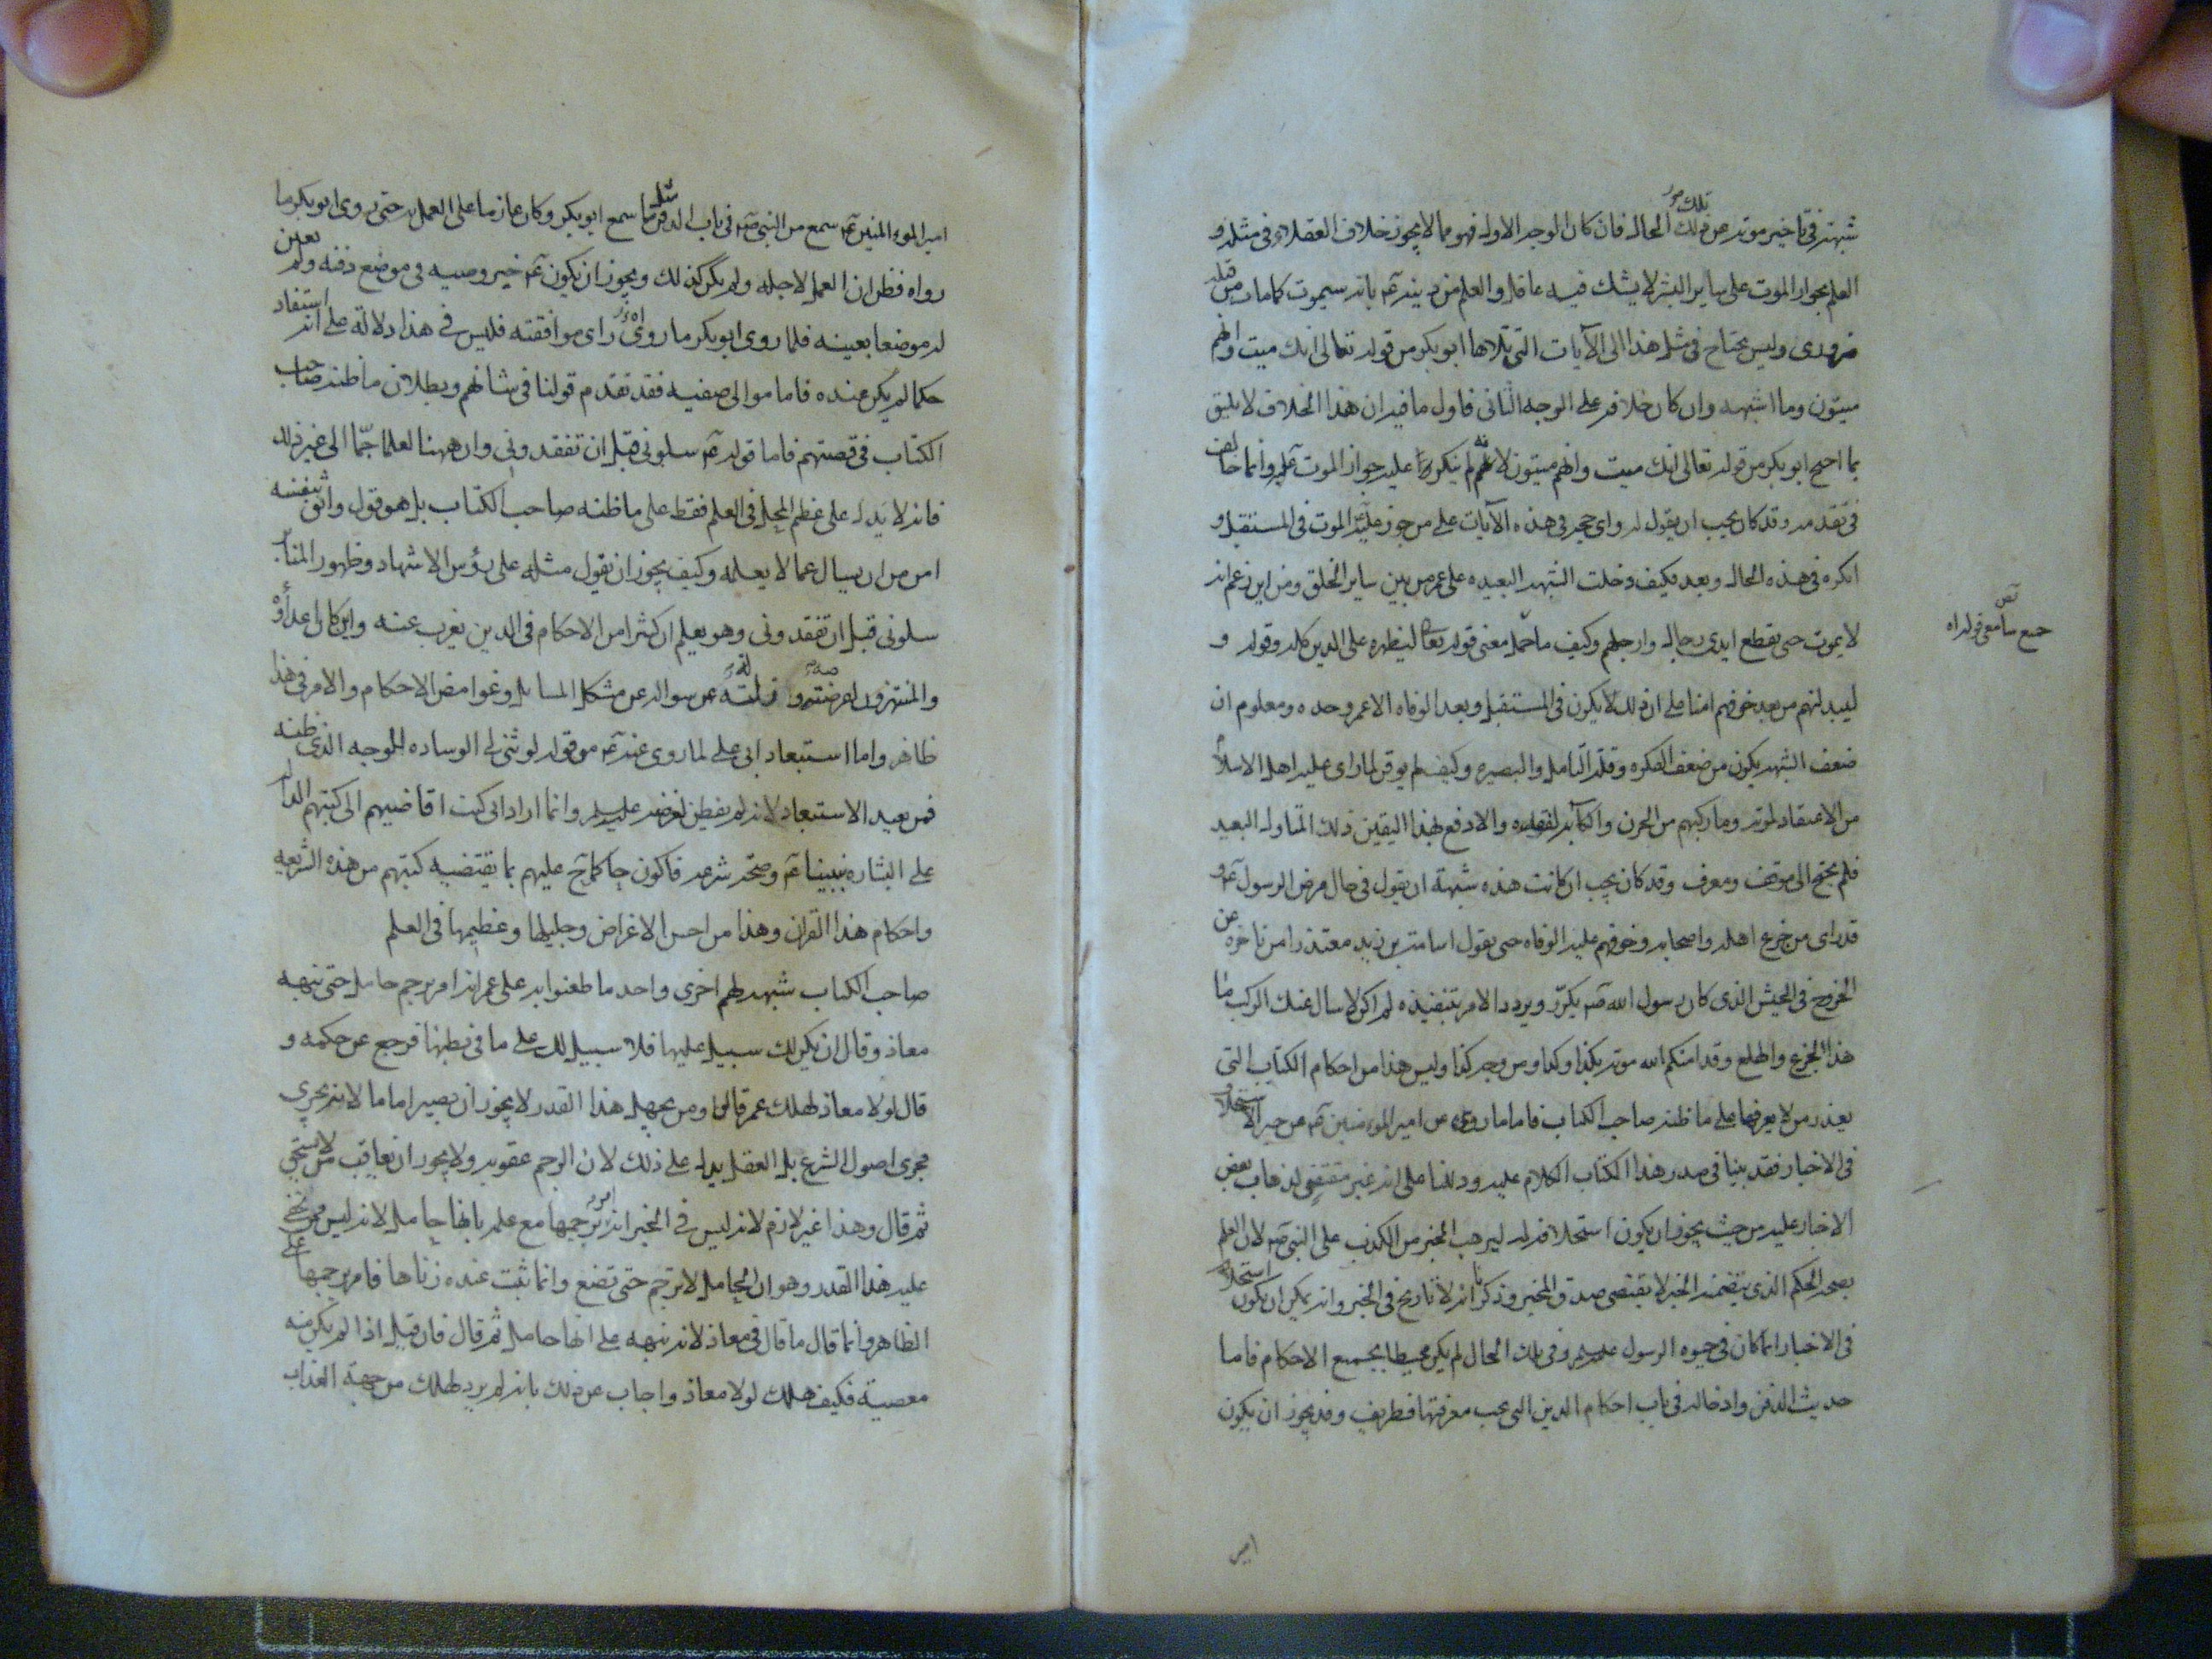 شبهته في تاخير موته عن تلك الحال فان كان الوجه الاول فهو مما لا يجوز خلاف العقلاء في مثله و
العلم بجواز الموت على ساير البشر لا يشك فيه عاقل والعلم من دينه ع بانه سيموت كما مات من قبله
ضروري وليس يحتاج في مثل هذا الى الآيات التي تلاها ابو بكر من قوله تعالى انك ميت وانهم
ميتون وما اشبهه وان كان خلافه على الوجه الثاني فاول ما فيه ان هذا الخلاف لا يليق
بما احتج ابو بكر من قوله تعالى انك ميت وانهم ميتون لانه لم ينكر عليه جواز الموت وانما خالف
في تقدمه وقد كان يجب ان يقول له واي حجه في هذه الآيات على من جوز عليه الموت في المستقبل و
انكره في هذه الحال وبعد فكيف دخلت الشبهه البعيده على عمر من بين ساير الخلق ومن اين زعم انه
لا يموت حتى يقطع ايدي رجال وارجلهم وكيف حمل معنى قوله تعالى ليظهره على الدين كله وقوله و
ليبدلنهم من بعد خوفهم امنا على ان ذلك لا يكون في المستقبل وبعد الوفاه الا عمر وحده ومعلوم ان
ضعف الشبهه يكون من ضعف الفكره وقله التامل والبصيره وكيف لم يوقن لما راى عليه اهل الاسلام
من الاعتقاد لموته وما ركبهم من الحزن والكآبه لفقده والا دفع بهذا اليقين ذلك التاول البعيد
فلم يحتج الى موقف ومعرف وقد كان يجب ان كانت هذه شبهة ان يقول في حال مرض الرسول ع و
قد راى من جزع اهله واصحابه وخوفهم عليه الوفاه حتى يقول اسامة بن زيد معتذرا من تاخره عن
الخروج في الجيش الذي كان رسول الله ص يكرر ويردد الامر بتنفيذه لم اكن لاسال عنك الركب ما
هذا الجزع والهلع وقد امنكم الله موته بكذا وكذا ومن وجه كذا وليس هذا من احكام الكتاب التي
يعذر من لا يعرفها على ما ظنه صاحب الكتاب فاما ما روى عن امير المومنين ع من خبر الاستحلاف
في الاخبار فقد بينا في صدر هذا الكتاب الكلام عليه ودللنا على انه غير مقتض لذهاب بعض
الاخبار عليه من حيث يجوز ان يكون استحلافه له ليرهب المخبر من الكذب على النبي ص لان العلم
بصحه الحكم الذي يتضمنه الخبر لا يقتضي صدق المخبر وذكرنا انه لا تاريخ في الخبر وانه يمكن ان يكون استحلافه
في الاخبار انما كان في حيوه الرسول عليه السلم وفي تلك الحال لم يكن محيطا بجميع الاحكام فاما
حديث الدفن وادخاله في باب احكام الدين التي يجب معرفتها فطريف وقد يجوز ان يكون
امير
جميع سامعي قوله اه
امير المومنين ع سمع من النبي ص في باب الدفن مثل ما سمع ابو بكر وكان عازما على العمل به حتى روى ابو بكر ما
رواه فظن ان العمل لاجله ولم يكن كذلك ويجوز ان يكون ع خير وصيه في موضع دفنه ولم يعين
له موضعا بعينه فلما روى ابو بكر ما رواه راى موافقته فليس في هذا دلالة على انه استفاد
حكما لم يكن عنده فاما موالى صفيه فقد تقدم قولنا في شانهم وبطلان ما ظنه صاحب
الكتاب في قصتهم فاما قوله ع سلوني قبل ان تفقدوني وان ههنا لعلما جما الى غير ذلك
فانه لا يدل على عظم المحل في العلم فقط على ما ظنه صاحب الكتاب بل هو قول واثق بنفسه
امن من ان يسال عما لا يعلمه وكيف يجوز ان يقول مثله على رؤس الاشهاد وظهور المنابر
سلوني قبل ان تفقدوني وهو يعلم ان كثيرا من الاحكام في الدين يعزب عنه واين كان اعداؤه
والمنتهزون لفرصته وزلته عن سواله عن مشكل المسايل وغوامض الاحكام والامر في هذا
ظاهر واما استبعاد ابي علي لما روى عنه ع من قوله لو ثنى لي الوساده للوجه الذي ظنه
فمن بعيد الاستبعاد لانه لم يفطن لغرضه عليه السلم وانما اراد اني كنت اقاضيهم الى كتبهم الداله
على البشاره بنبينا ع وصحه شرعه فاكون حاكما ح عليهم بما يقتضيه كتبهم من هذه الشريعه
واحكام هذا القران وهذا من احسن الاغراض وجليلها وعظيمها في العلم
صاحب الكتاب شبهه لهم اخرى واحد ما طعنوا به على عمر انه امر برجم حامل حتى نبهه
معاذ وقال ان يكن لك سبيل عليها فلا سبيل لك على ما في بطنها فرجع عن حكمه و
قال لولا معاذ لهلك عمر قالوا ومن يجهل هذا القدر لا يجوز ان يصير اماما لانه يجري
مجرى اصول الشرع بل العقل يدل على ذلك لان الرجم عقوبه ولا يجوز ان يعاقب من لا يستحق
ثم قال وهذا غير لازم لانه ليس في الخبر انه امر برجمها مع علمه بانها حامل لانه ليس ممن يخفى
عليه هذا القدر وهو ان الحامل لا ترجم حتى تضع وانما ثبت عنده زناها فامر برجمها على
الظاهر وانما قال ما قال في معاذ لانه نبهه على انها حامل ثم قال فان قيل اذا لم يكن منه
معصية فكيف هلك لولا معاذ واجاب عن ذلك بانه لم يرد لهلك من جهة العذاب